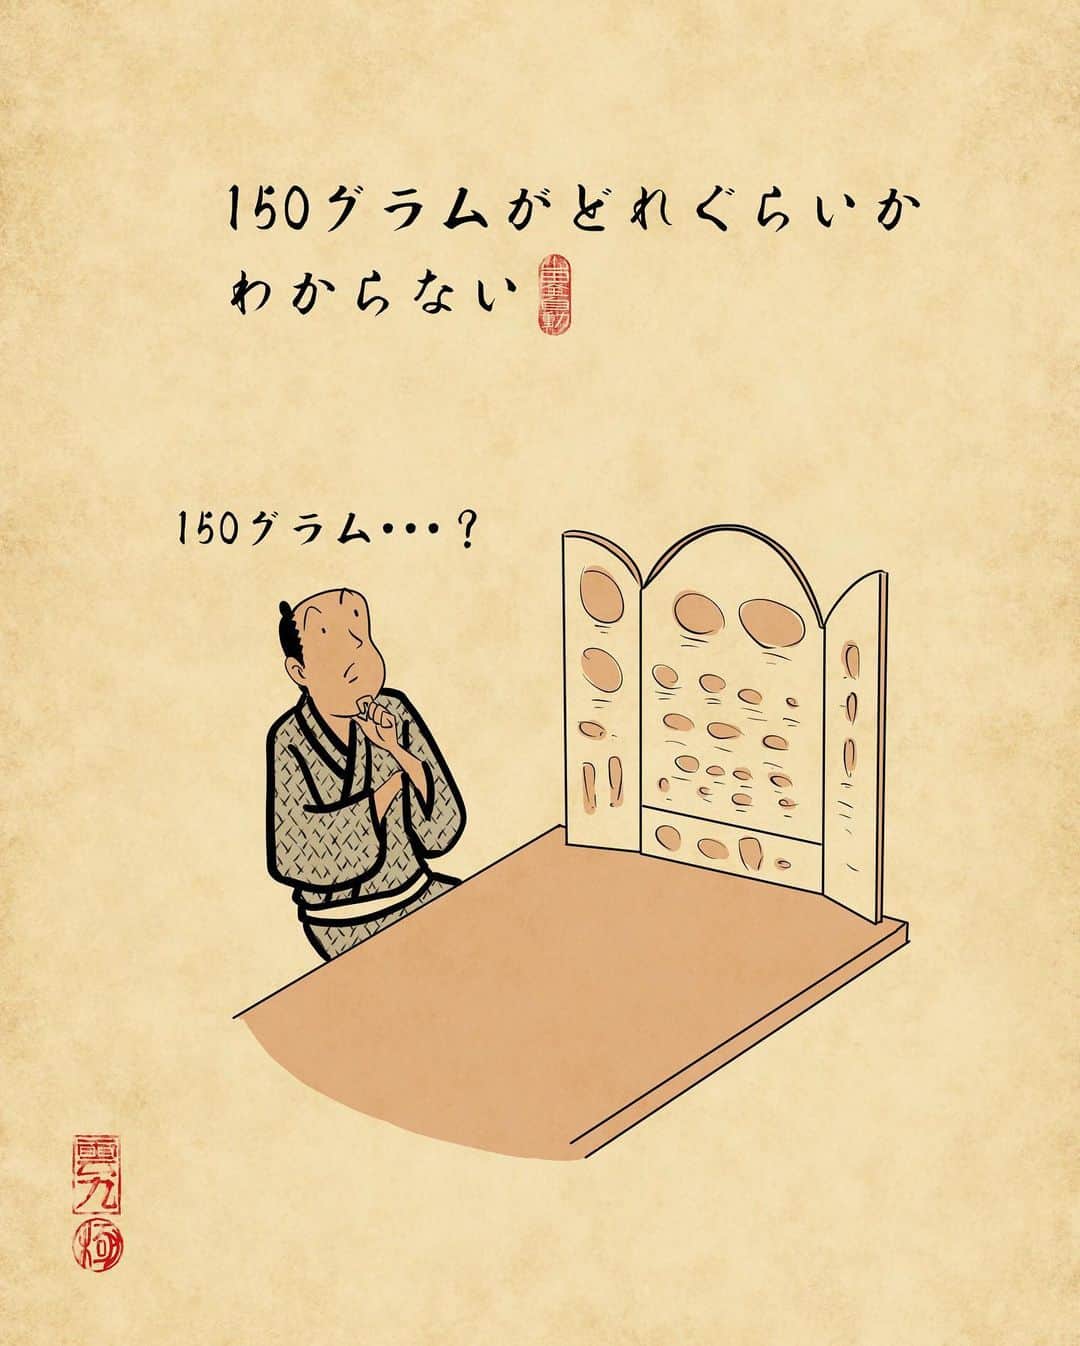 150グラムがどれぐらいか
わからない
150グラム・・・？